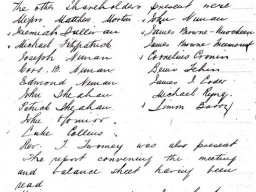 The other Shareholders present were
Messrs Matthew Mortin John Nunan
Jeremiah Sullivan James Browne
Michael Fitzpatrick James Browne
Joseph Nunan Cornelius Cronin
Nunan Denis
Edmond Nunan James T
John Sheahan Michael
Patrick Sheahan Simon Barry
John Connor
Luke Collins
Rev. T. Twomey was also present
The report convening the meeting
and balance sheet having been
read